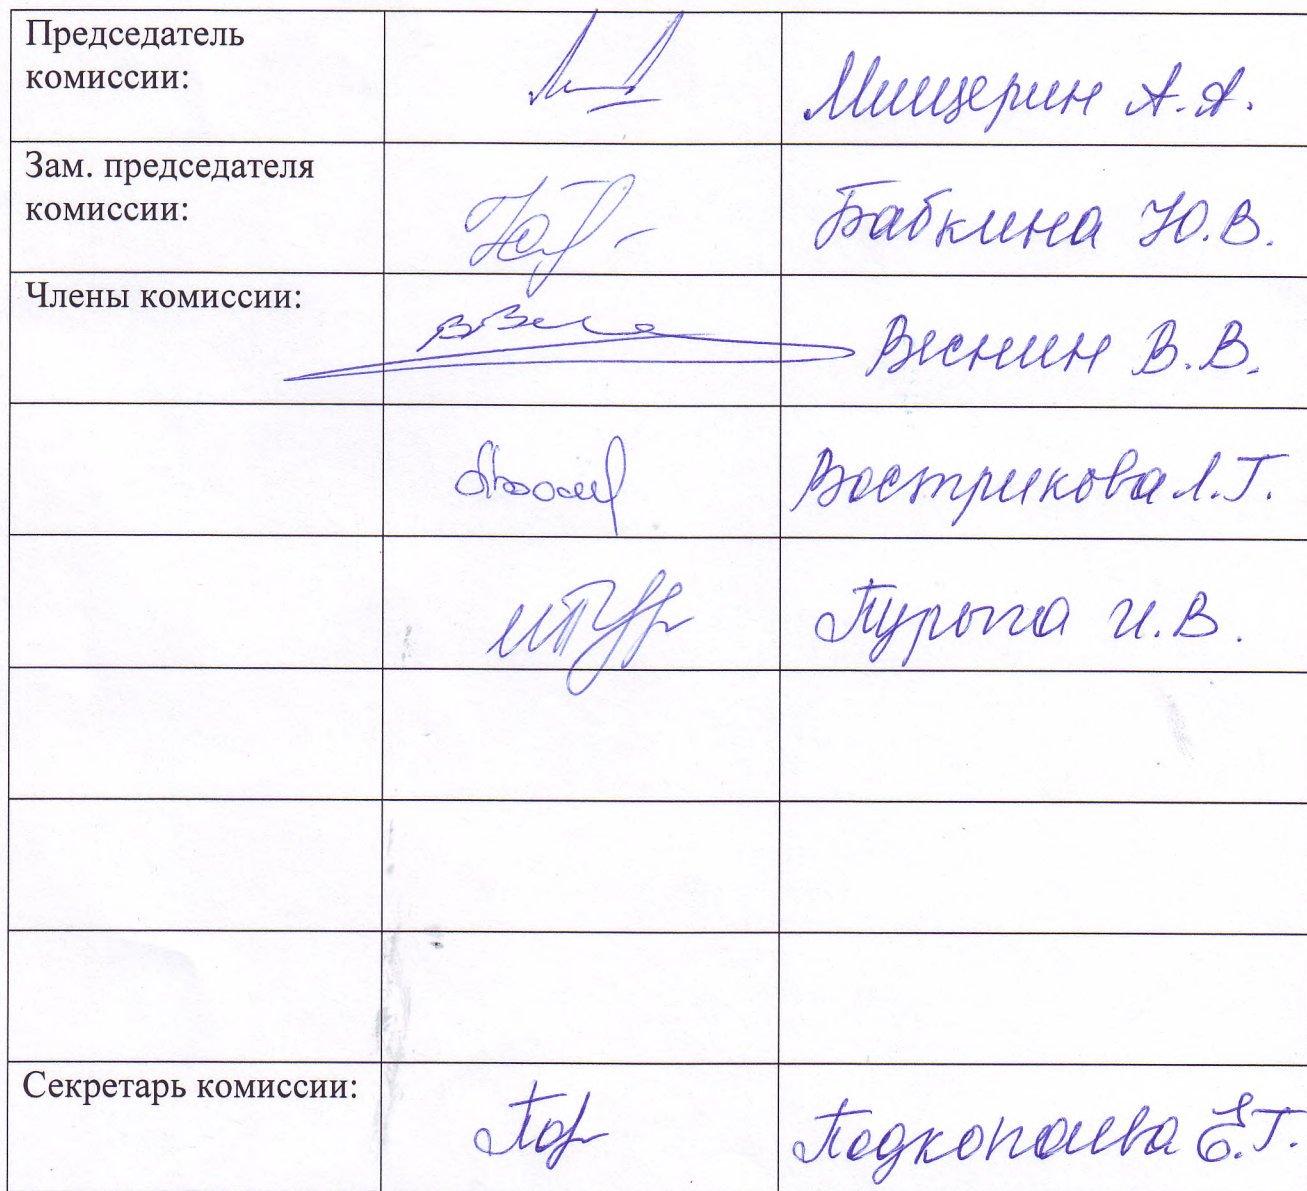 Председатель
комиссии:
Мищерин А.А.
Зам. председателя
комиссии:
Бабкина Ю.В.
Члены комиссии:
Веснин В.В.
Вострикова Л.Г.
Пурыга И.В.
Секретарь комиссии:
Подкопаева Е.Г.